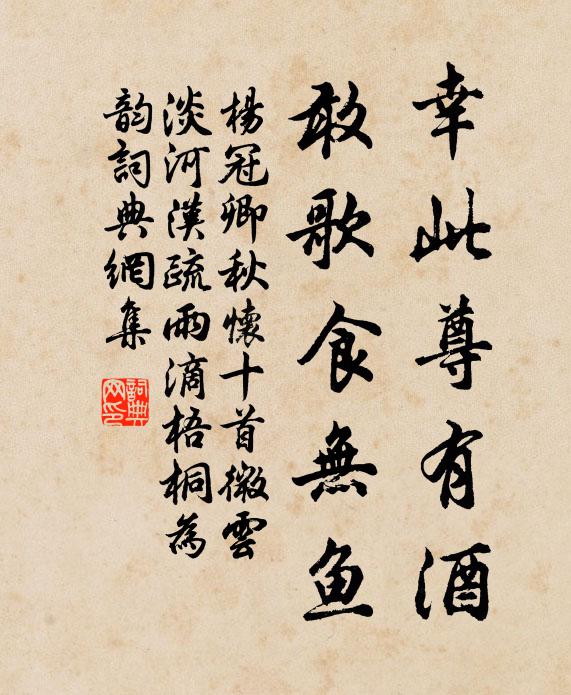 幸此尊有酒
敢歌食無魚
楊冠卿秋懷十首微雲
淡河漢疏雨滴梧桐為
韵詞典網集
詞典网印